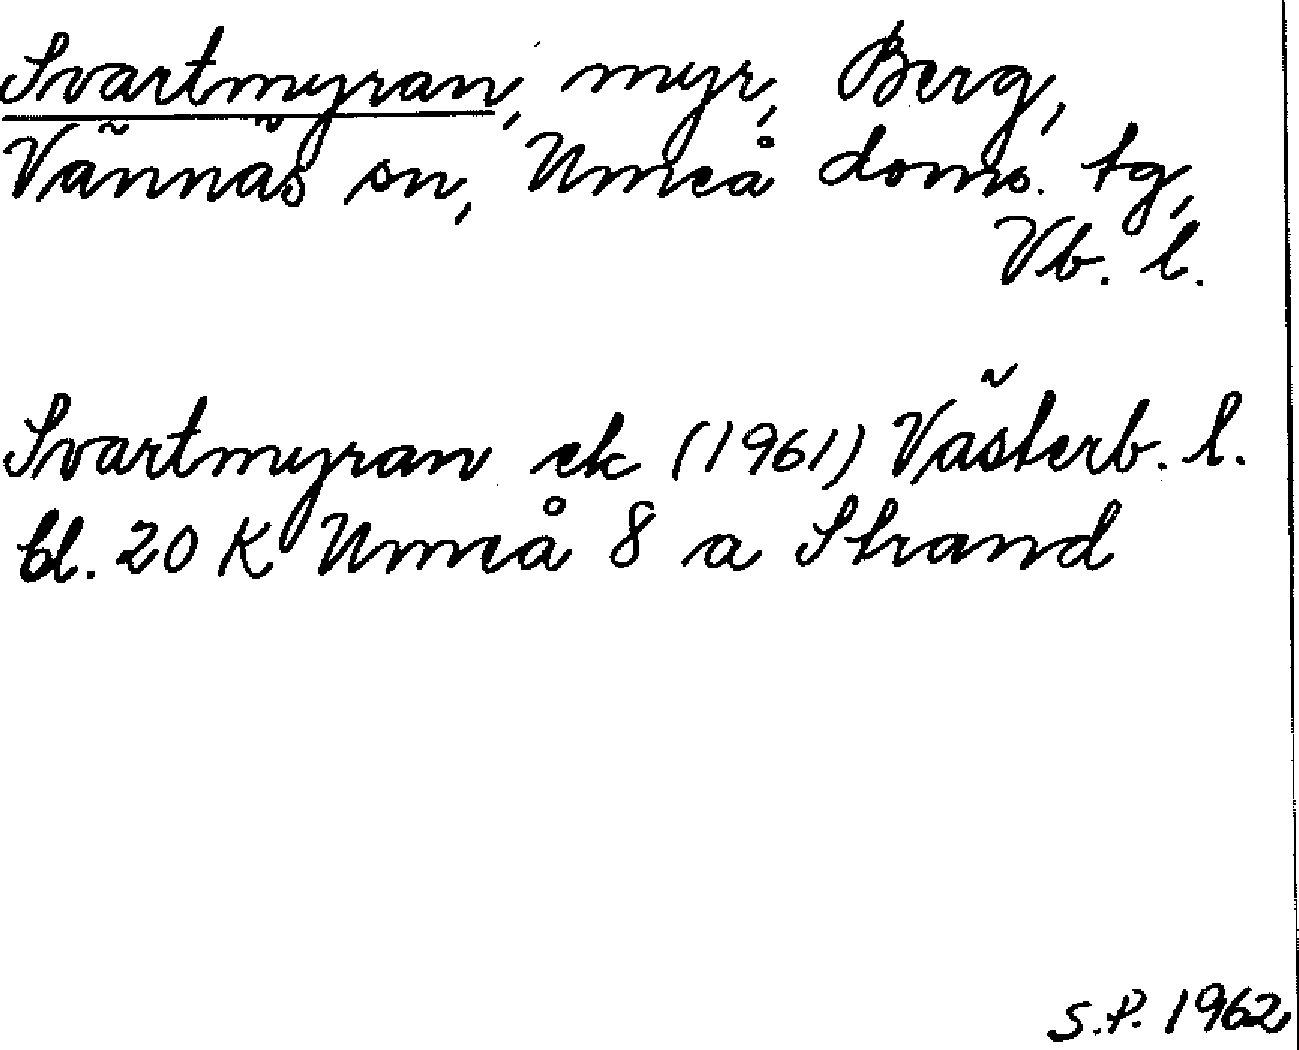 Svartmyran, myr, Berg,
Vännäs sn, Umeå doms. tg,
Vb. l.
Svartmyran ek (1961) Västerb. l.
bl. 20 K Umeå 8 a Strand
S.P. 1962